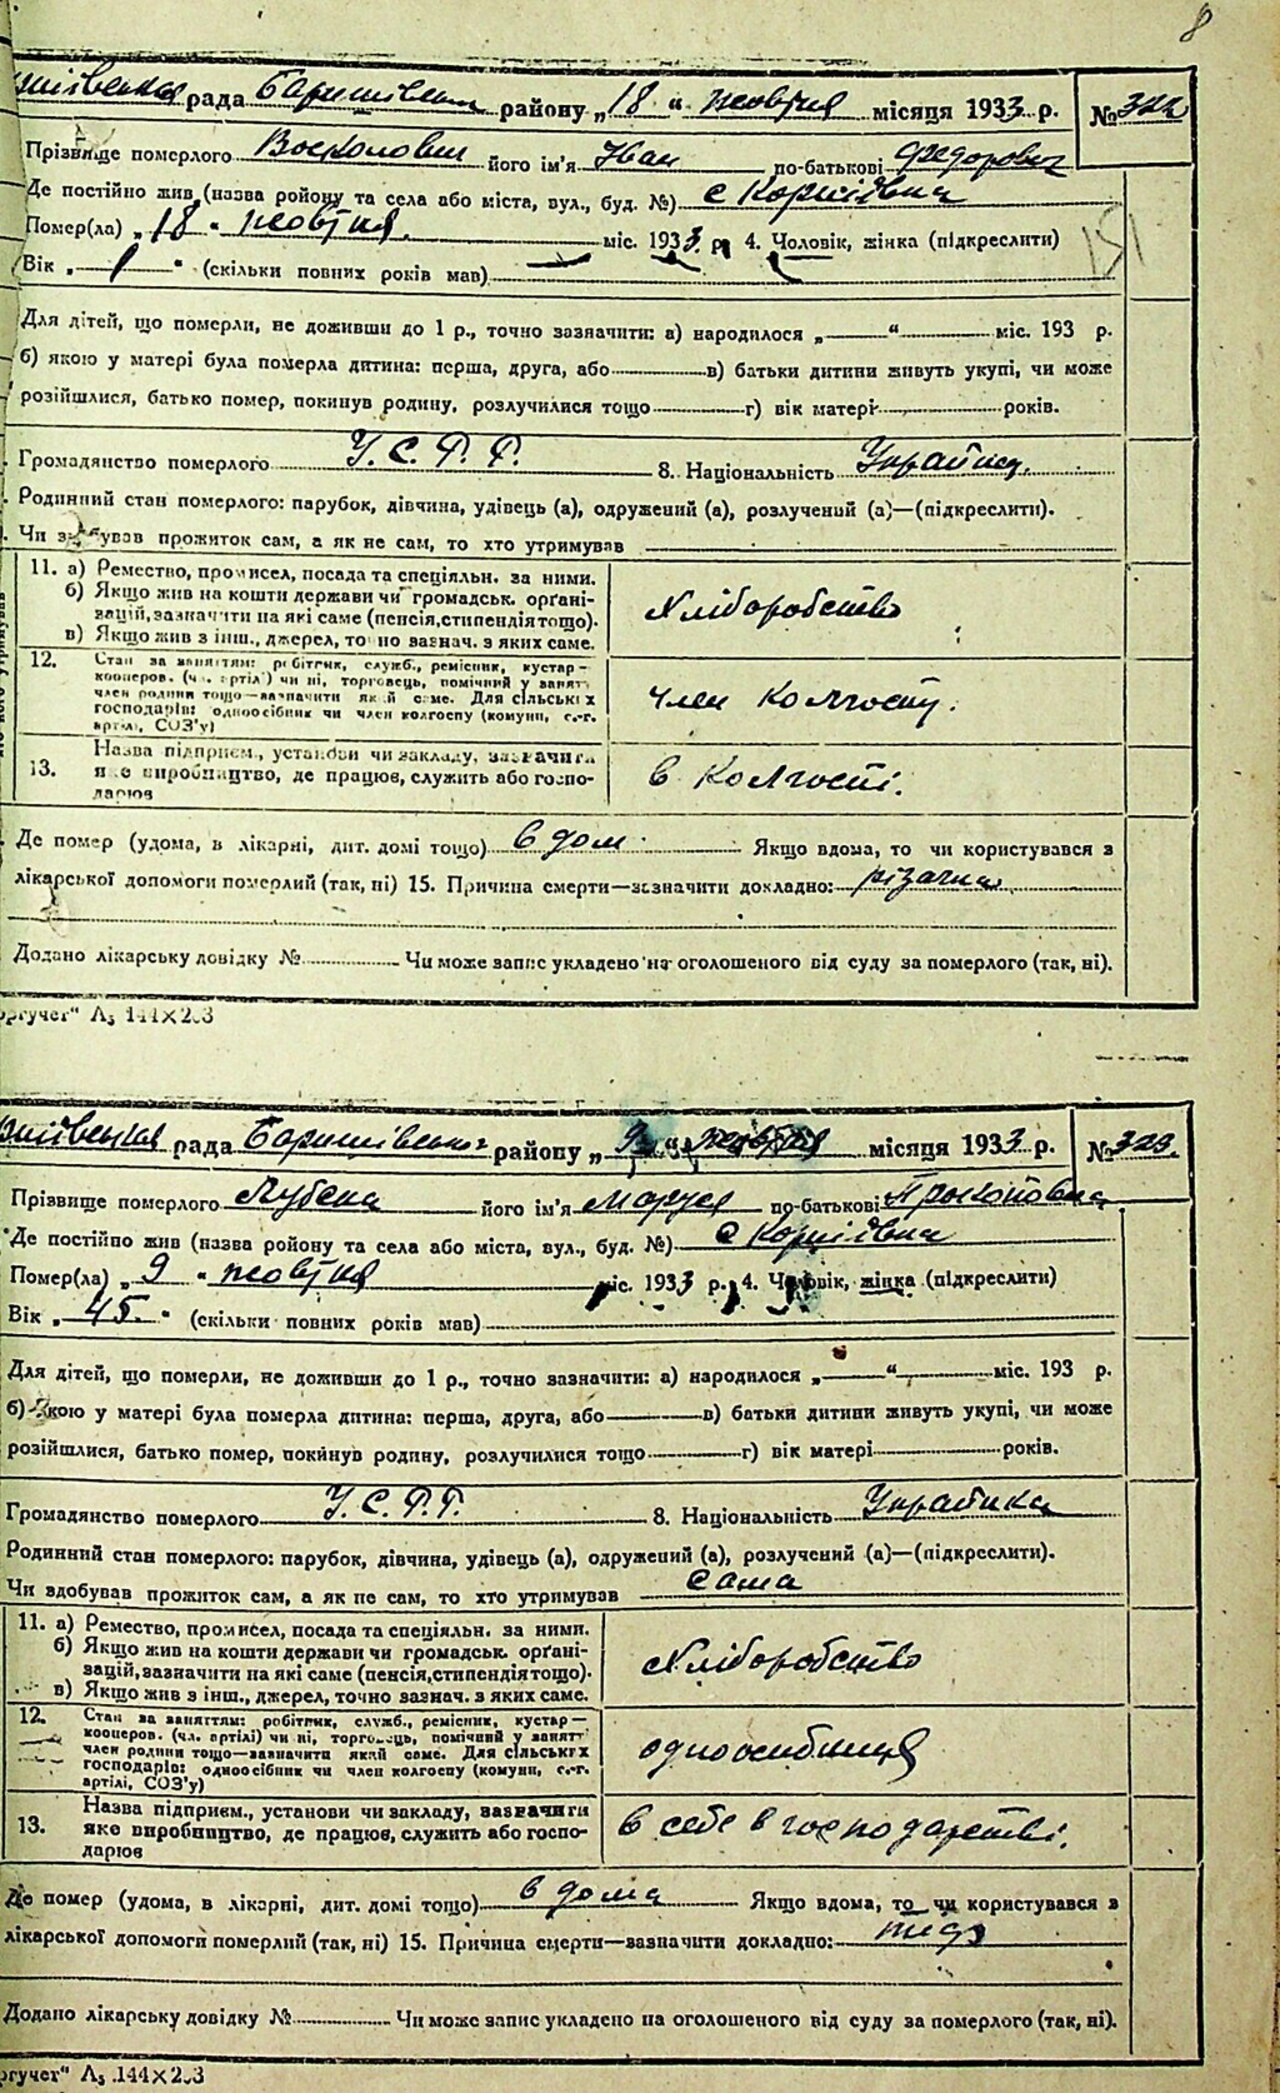 8
рада Баришівськ району „18 “ жовтня місяця 1933 р. № 322
Прізвище померлого Восколович його ім'я Іван по-батькові Федорович
Де постійно жив (назва ройону та села або міста, вул., буд. №) с Корніївка
Помер(ла) „18 “ жовтня міс. 1933 р. 4. Чоловік, жінка (підкреслити)
Вік „ 1 “ (скільки повних років мав)
Для дітей, що померли, не доживши до 1 р., точно зазначити: а) народилося „ “ міс. 193 р.
б) якою у матері була померла дитина: перша, друга, або в) батьки дитини живуть укупі, чи може
розійшлися, батько помер, покинув родину, розлучилися тощо г) вік матері років.
Громадянство померлого У.С.Р.Р. 8. Національність Україн.
Родинний стан померлого: парубок, дівчина, удівець (а), одружений (а), розлучений (а)—(підкреслити).
Чи здобував прожиток сам, а як не сам, то хто утримував
11. а) Ремество, промисел, посада та спеціяльн. за ними.
б) Якщо жив на кошти держави чи громадськ. орґані-
зацій, зазначити на які саме (пенсія, стипендія тощо).
в) Якщо жив з інш., джерел, точно зазнач. з яких саме.
Хліборобство
12. Стан за заняттям: робітник, служб., ремісник, кустар—
кооперов. (чл. артілі) чи ні, торговець, помічний у занятт
член родини тощо—зазначити який саме. Для сільських
господарів: одноосібник чи член колгоспу (комуни, с.-г.
артілі, СОЗ'у)
член колгоспу.
13. Назва підприєм., установи чи закладу, зазначити
яке виробництво, де працює, служить або госпо-
дарює
в колгоспі.
Де помер (удома, в лікарні, дит. домі тощо) в дом Якщо вдома, то чи користувався з
лікарської допомоги померлий (так, ні) 15. Причина смерти—зазначити докладно: різачка
Додано лікарську довідку № Чи може запис укладено на оголошеного від суду за померлого (так, ні).
ргучет“ А₅ 144×203
рада Баришівської району „9 “ жовтня місяця 1933 р. № 323.
Прізвище померлого його ім'я Маруся по-батькові Прокоповна
Де постійно жив (назва ройону та села або міста, вул., буд. №) с Корніївка
Помер(ла) „ 9 “ жовтня міс. 1933 р. 4. Чоловік, жінка (підкреслити)
Вік „ 45. “ (скільки повних років мав)
Для дітей, що померли, не доживши до 1 р., точно зазначити: а) народилося „ “ міс. 193 р.
б) якою у матері була померла дитина: перша, друга, або в) батьки дитини живуть укупі, чи може
розійшлися, батько помер, покинув родину, розлучилися тощо г) вік матері років.
Громадянство померлого У.С.Р.Р. 8. Національність Українка
Родинний стан померлого: парубок, дівчина, удівець (а), одружений (а), розлучений (а)—(підкреслити).
Чи здобував прожиток сам, а як не сам, то хто утримував сама
11. а) Ремество, промисел, посада та спеціяльн. за ними.
б) Якщо жив на кошти держави чи громадськ. орґані-
зацій, зазначити на які саме (пенсія, стипендія тощо).
в) Якщо жив з інш., джерел, точно зазнач. з яких саме.
Хліборобство
12. Стан за заняттям: робітник, служб., ремісник, кустар—
кооперов. (чл. артілі) чи ні, торговець, помічний у занятт
член родини тощо—зазначити який саме. Для сільських
господарів: одноосібник чи член колгоспу (комуни, с.-г.
артілі, СОЗ'у)
одноосибниця
13. Назва підприєм., установи чи закладу, зазначити
яке виробництво, де працює, служить або госпо-
дарює
в себе в господарстві.
Де помер (удома, в лікарні, дит. домі тощо) в дома Якщо вдома, то чи користувався з
лікарської допомоги померлий (так, ні) 15. Причина смерти—зазначити докладно: тиф
Додано лікарську довідку № Чи може запис укладено на оголошеного від суду за померлого (так, ні).
ргучет“ А₅ 144×203